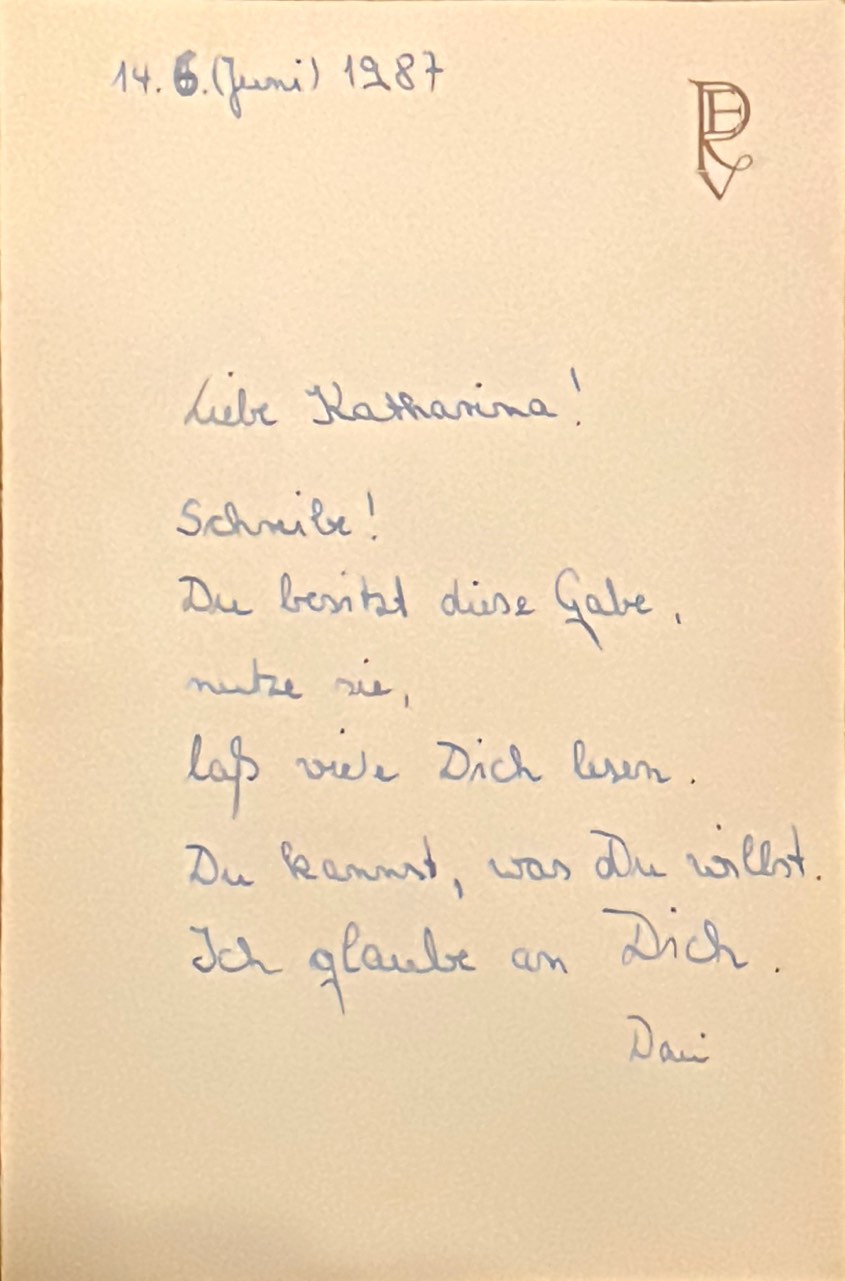 14. 6. (Juni) 1987
Liebe Katharina!
Schreibe!
Du besitzt diese Gabe,
nutze sie,
laß viele Dich lesen.
Du kannst, was Du willst.
Ich glaube an Dich.